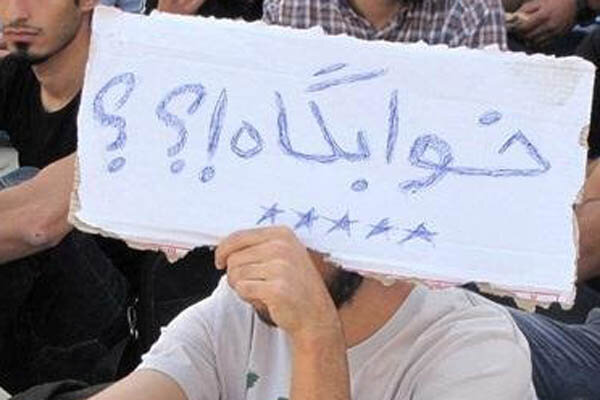 خوابگاه!؟؟؟
★★★★★